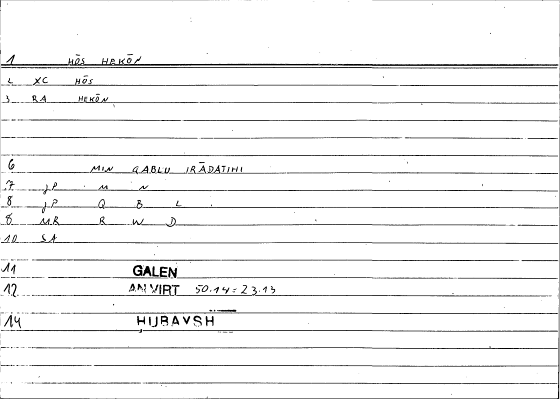 1 HŌS HEKŌN
2 XC HŌS
3 RA HEKŌN
6 MIN QABLU IRĀDATIHI
7 JP M N
8 JP Q B L
8 MR R W D
10 SA
11 GALEN
12 AN VIRT 50.14 = 23.13
14 HUBAYSH